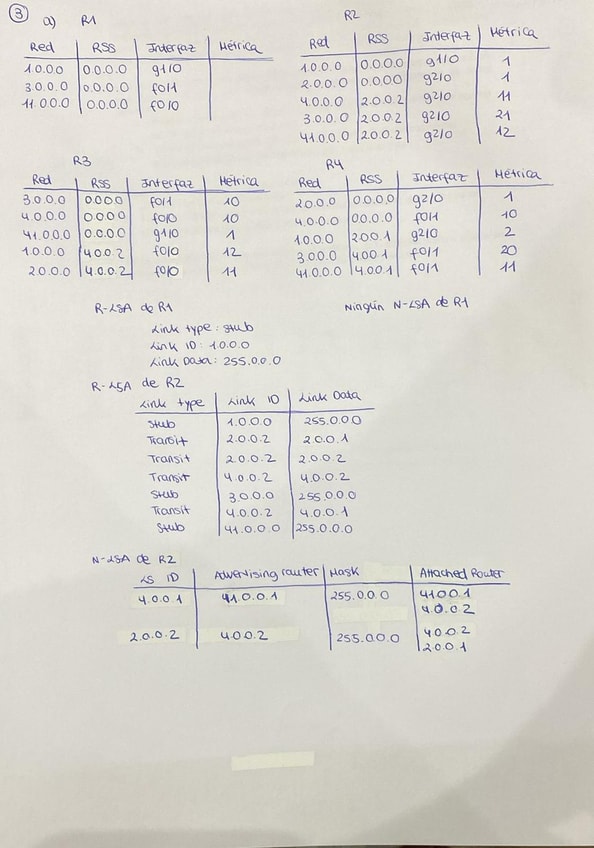 ③ a) R1
Red RSS Interfaz Métrica
1.0.0.0 0.0.0.0 g1/0
3.0.0.0 0.0.0.0 f0/1
11.0.0.0 0.0.0.0 f0/0
R2
Red RSS Interfaz Métrica
1.0.0.0 0.0.0.0 g1/0 1
2.0.0.0 0.0.0.0 g2/0 1
4.0.0.0 2.0.0.2 g2/0 11
3.0.0.0 2.0.0.2 g2/0 21
41.0.0.0 2.0.0.2 g2/0 12
R3
Red RSS Interfaz Métrica
3.0.0.0 0.0.0.0 f0/1 10
4.0.0.0 0.0.0.0 f0/0 10
41.0.0.0 0.0.0.0 g1/0 1
1.0.0.0 4.0.0.2 f0/0 12
2.0.0.0 4.0.0.2 f0/0 11
R4
Red RSS Interfaz Métrica
2.0.0.0 0.0.0.0 g2/0 1
4.0.0.0 0.0.0.0 f0/1 10
1.0.0.0 2.0.0.1 g2/0 2
3.0.0.0 4.0.0.1 f0/1 20
41.0.0.0 4.0.0.1 f0/1 11
R-LSA de R1
Link type: Stub
Link ID: 1.0.0.0
Link Data: 255.0.0.0
Ningún N-LSA de R1
R-LSA de R2
Link type Link ID Link Data
Stub 1.0.0.0 255.0.0.0
Transit 2.0.0.2 2.0.0.1
Transit 2.0.0.2 2.0.0.2
Transit 4.0.0.2 4.0.0.2
Stub 3.0.0.0 255.0.0.0
Transit 4.0.0.2 4.0.0.1
Stub 41.0.0.0 255.0.0.0
N-LSA de R2
LS ID Advertising router Mask Attached Router
4.0.0.1 41.0.0.1 255.0.0.0 41.0.0.1
4.0.0.2
2.0.0.2 4.0.0.2 255.0.0.0 4.0.0.2
2.0.0.1